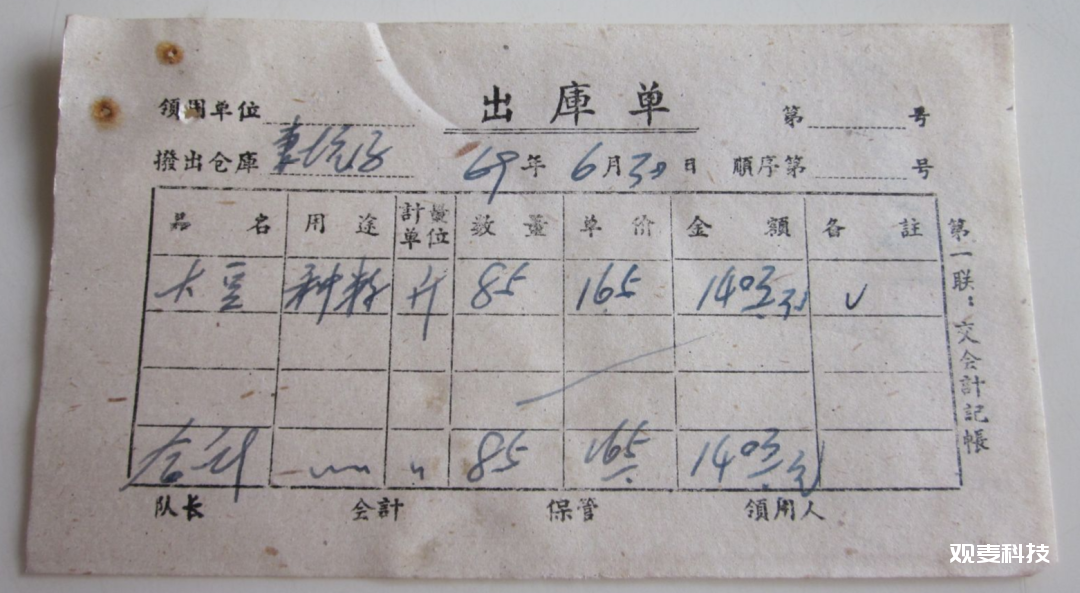 出庫单
領用单位 第 号
撥出仓庫 69年6月30日 順序第 号
品名 用途 計量单位 数量 单價 金額 备註
大豆 种籽 斤 85 165 1403
合计 〃 85 165 1403
队长 会計 保管 領用人
第一联：交会計記帳
观麦科技